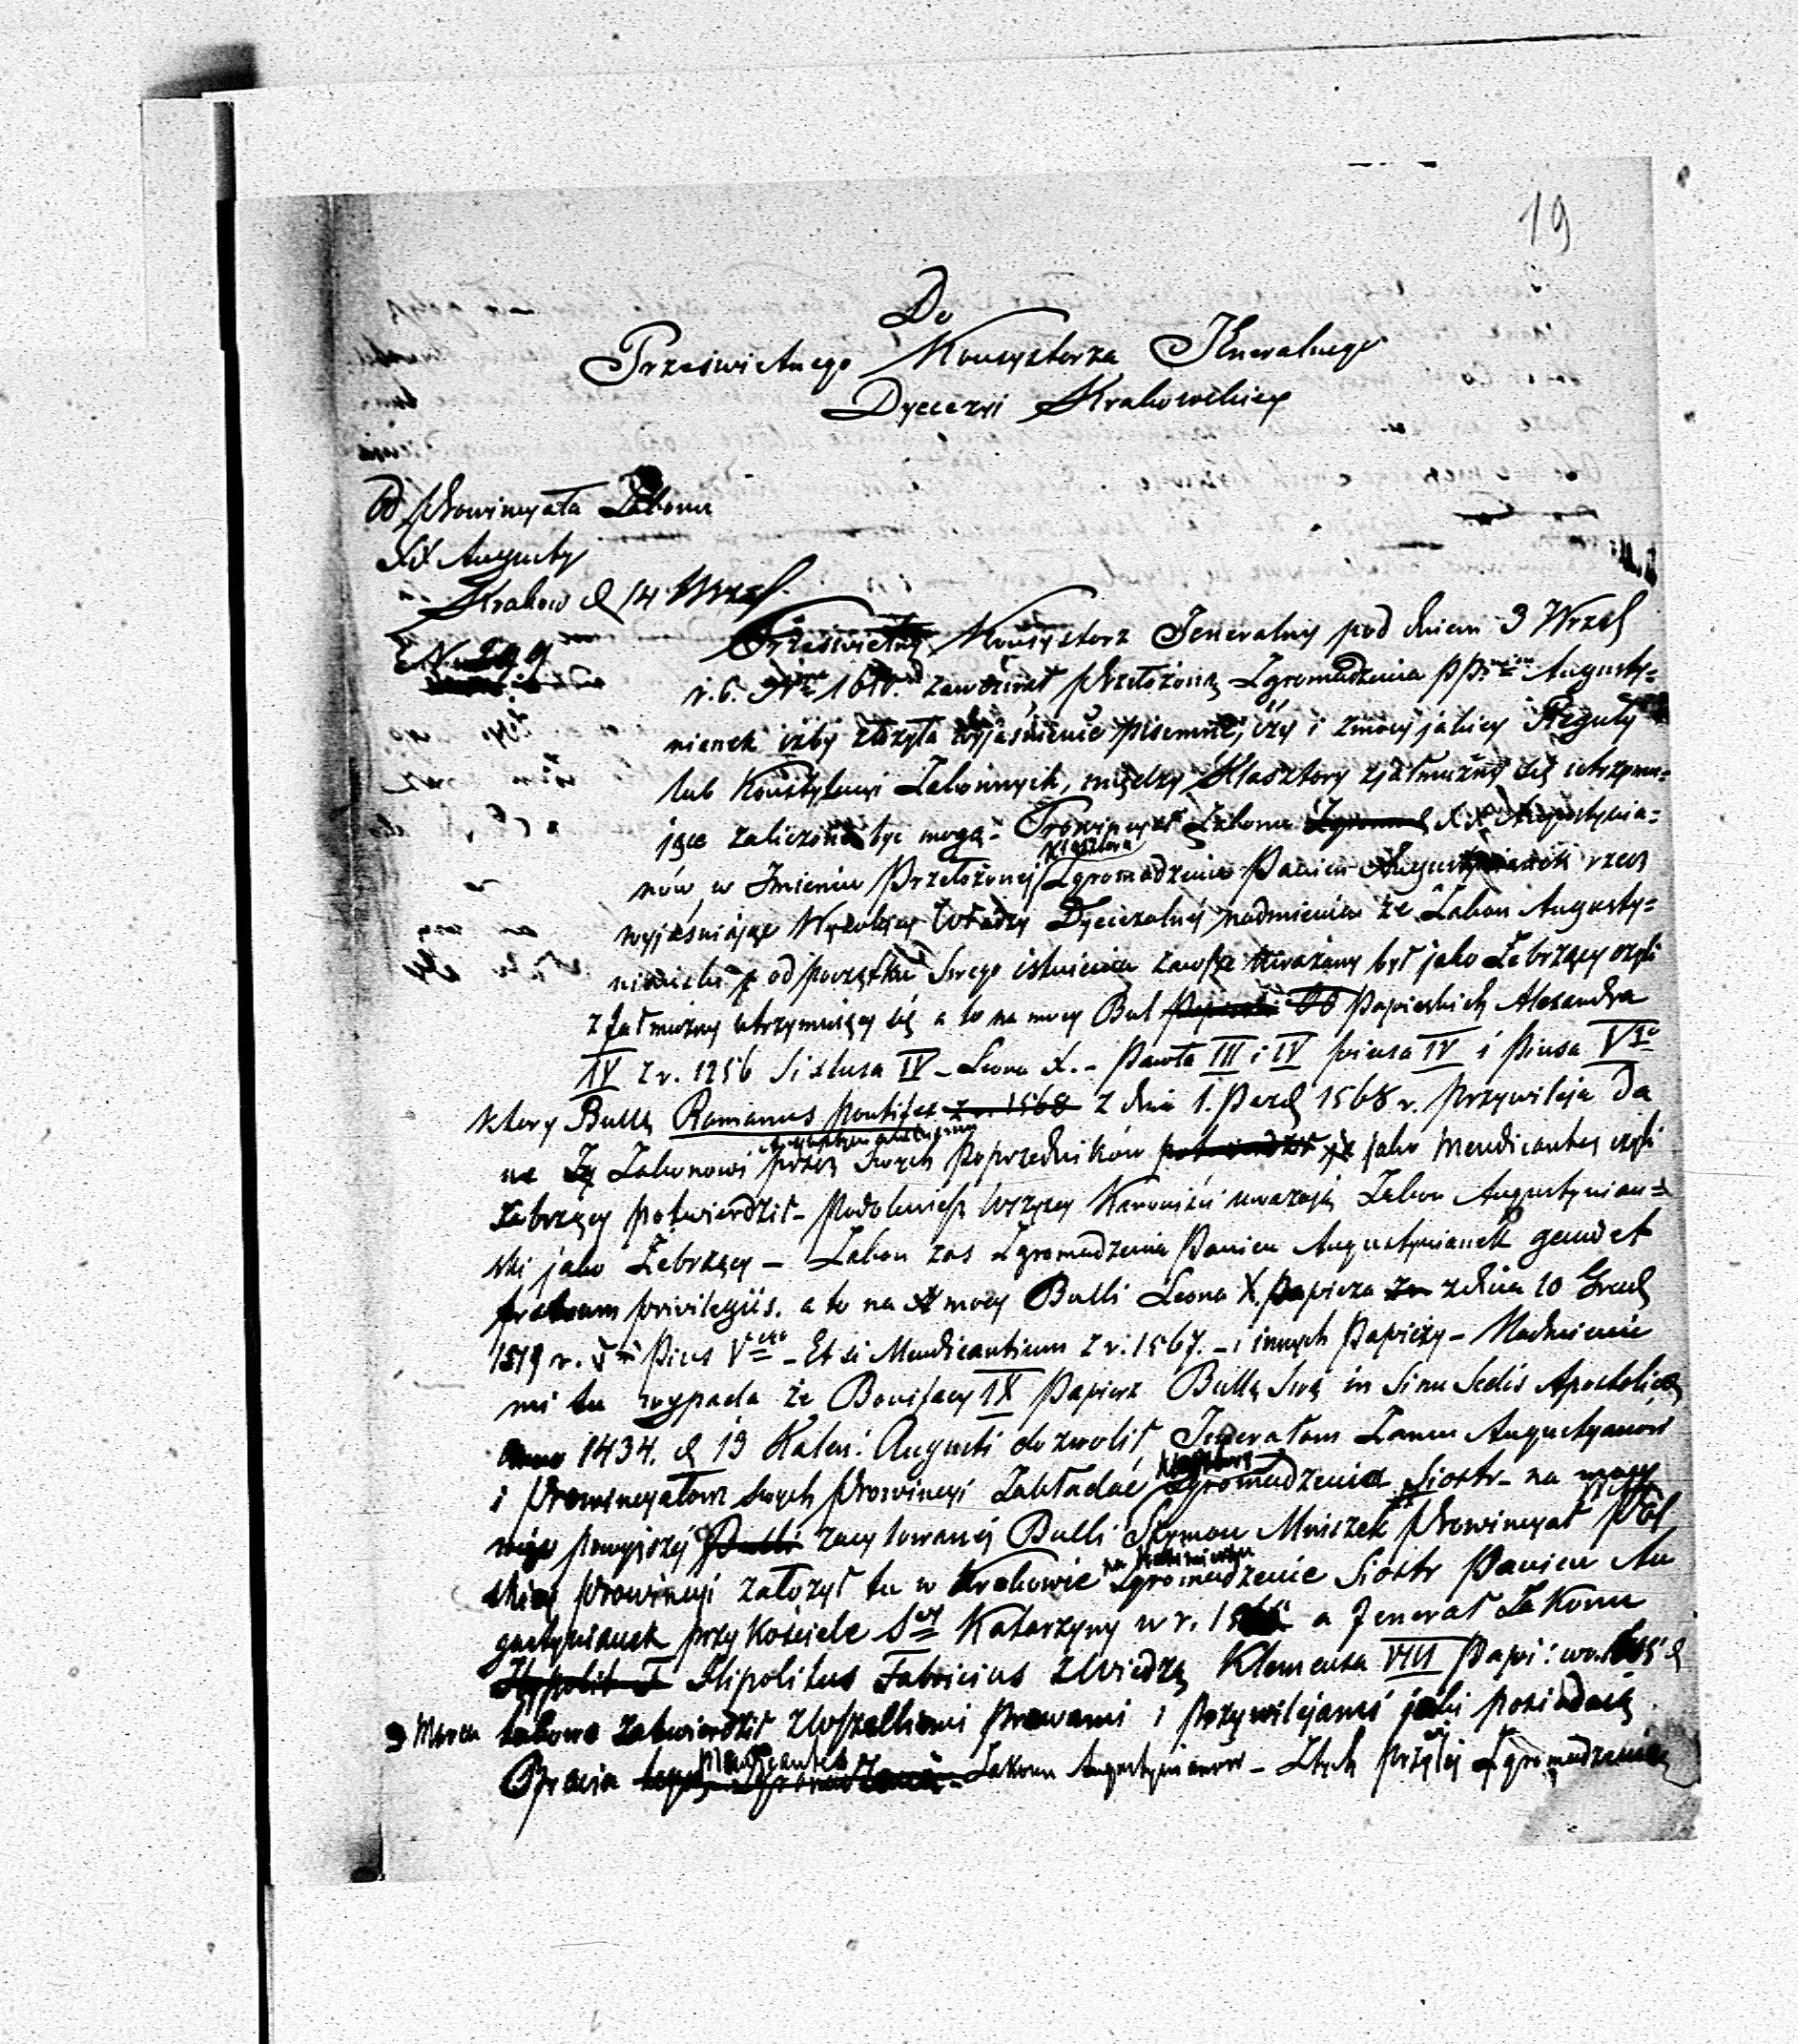 19
Do
Prześwietnego Konsystorza Jeneralnego
Dyecezyi Krakowskiey
Od Prowincyała Zakonu
XX Augusty
Krakow d 14 Wrześ.
Prześwietny Konsystorz Jeneralny pod dniem 3 Wrześ
r. b. zawezwał Przełożoną Zgromadzenia PP Augusty=
nianek iżby złożyła wyjaśnienie pisemne, czy i z mocy jakiey Reguły
lub Konstytucyi Zakonnych, między Klasztory z jałmużny się utrzymu=
jące zaliczone być mogą – Prowincyał Zakonu XX Augustynia=
nów w Imieniu Przełożonej Klasztoru Zgromadzenia Panien Augustynianek rzecz
wyjaśniając Wysokiey Władzy Dyecezalnej nadmienia że Zakon Augusty=
niański od początku Swego istnienia zawsze uważany był jako Żebrzący czyli
z jałmużny utrzymujący się a to na mocy Bul Papieskich Alexandra
IV z r. 1256 Sixtusa IV – Leona X. – Pawła III i IV Piusa IV i Piusa Vgo
ktory Bullą Romanus pontifex z r. 1568 z dnia 1. Paźd 1568 r. Przywileja da
ne Zakonowi przez Swych Poprzedników jako Mendicantes czyli
Żebrzący potwierdził – Podobnież Wszyscy Kanoniści uważają Zakon Augustynian=
ski jako Żebrzący – Zakon zas Zgromadzenia Panien Augustynianek gaudet
fratrum privilegiis. a to na mocy Bulli Leona X. Papieża z dnia 10 Grud
1519 r. Pius V – Et si Mendicantium z r. 1567. – i innych Papieży – Nadmienić
mi tu wypada że Bonifacy IX Papież Bullą Swą in Sinu Sedis Apostolicae
anno 1434. d 13 Kalen: Augusti dozwolił Jenerałom Zakonu Augustyanów
i Prowincyałom Swych Prowincyi Zakładać Klasztory Zgromadzenia Siostr – na mocy
więc powyższej Bulli zacytowanéj Bulli Szymon Mniszek Prowincyał Pol
skiey Prowincyi założył tu w Krakowie na Kazimierzu Zgromadzenie Siostr Panien Au
gustynianek przy Kościele Stey Katarzyny w r. a Jenerał Zakonu
Hypolit F Hipolitus Fabricius z Wiedzą Klemensa VIII Papi: w r. d
3 Marca takowe zatwierdził z Wszelkiemi Prawami i Przywilejami jaki posiadają
Bracia Mendicantes Zakonu Augustynianow – Z tych przyczyn Zgromadzenie